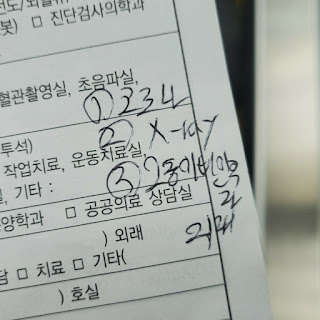 봇) □ 진단검사의학과
혈관촬영실, 초음파실,
①
투석) ② X-ray
작업치료, 운동치료실,
기타 : ③ 2동이비인후과
양학과 □ 공공의료 상담실
) 외래 외래
담 □ 치료 □ 기타(
) 호실